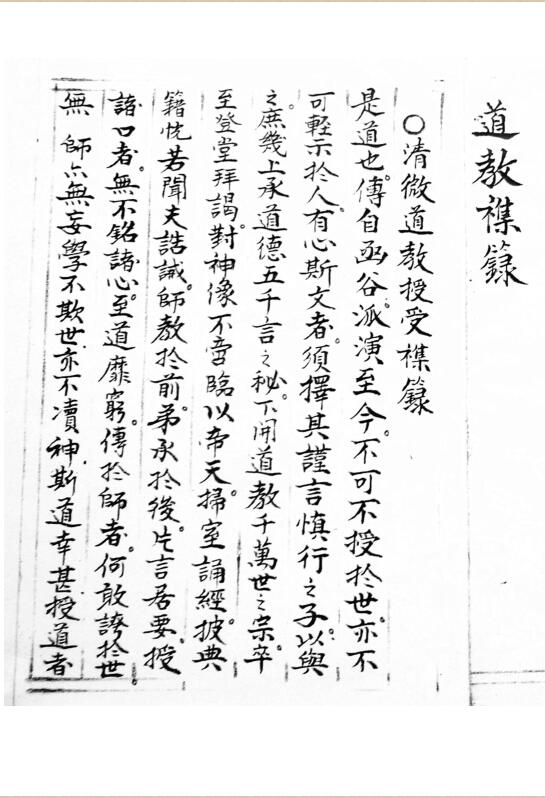 道教襍籙
○清微道教授受襍籙
是道也。傳自函谷。派演至今。不可不授扵世。亦不
可輕示扵人。有心斯文者。須擇其謹言慎行之子。以與
之。庶幾上承道德五千言之秘。下開道教千萬世之宗。卒
至登堂拜謁。對神像不啻臨以帝天。掃室誦經。披典
籍恍若聞夫誥誡。師教扵前。弟承扵後。片言居要。授
諸口者。無不銘諸心。至道靡窮。傳扵師者。何敢謗扵世
無師亦無妄學不欺世亦不凟神斯道幸甚授道者